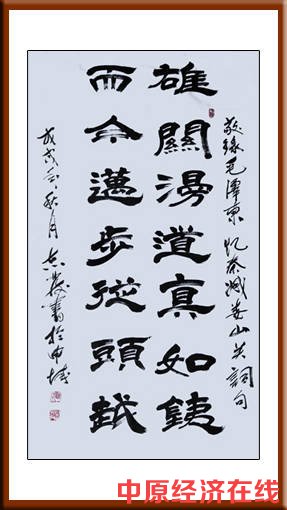 敬録毛澤東 忆秦娥娄山关詞句
雄關漫道真如銕
而今邁步從頭越
戊戌 秋月 書於申城
中原经济在线